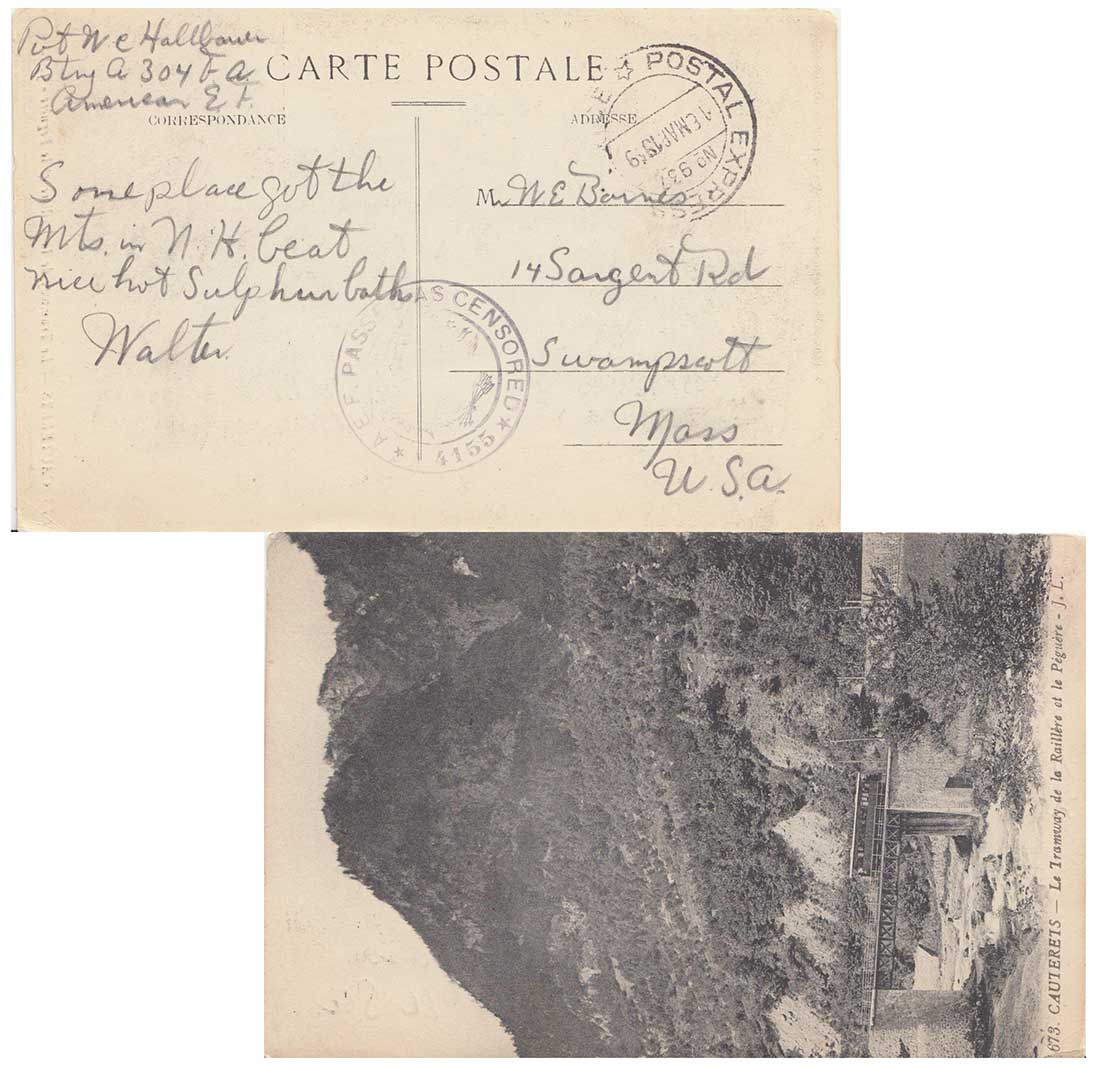 Pvt W C Hallbauer
Btry A 304 F. A.
American E. F.
CARTE POSTALE
CORRESPONDANCE
ADRESSE
POSTAL EXPRESS
No 937
Some place got the
Mts. in N. H. beat
nice hot Sulphur baths
Walter.
A.E.F. PASSED AS CENSORED
4155
M W E Barnes
14 Sargent Rd
Swampscott
Mass
U. S. A.
673. CAUTERETS — Le Tramway de la Raillère et le Péguère - J. L.